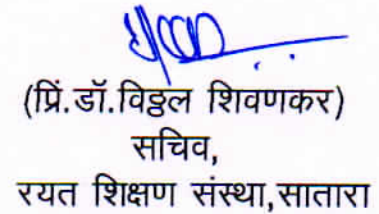 (प्रिं.डॉ.विठ्ठल शिवणकर)
सचिव,
रयत शिक्षण संस्था,सातारा